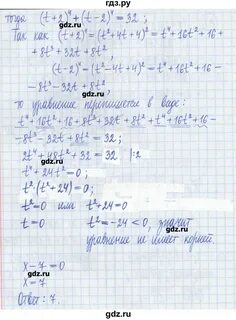 гдз.ру
тогда (t+2)⁴+(t-2)⁴=32;
Так как (t+2)⁴=(t²+4t+4)²=t⁴+16t²+16+
+8t³+32t+8t²;
(t-2)⁴=(t²-4t+4)²=t⁴+16t²+16-
-8t³-32t+8t²;
то уравнение перепишется в виде:
t⁴+16t²+16+8t³+32t+8t²+t⁴+16t²+16-
-8t³-32t+8t²=32;
2t⁴+48t²+32=32 |:2
t⁴+24t²=0;
t²·(t²+24)=0;
t²=0 или t²+24=0
t=0 t²=-24<0, значит
уравнение не имеет корней.
x-7=0
x=7
Ответ: 7.
gdz.ru